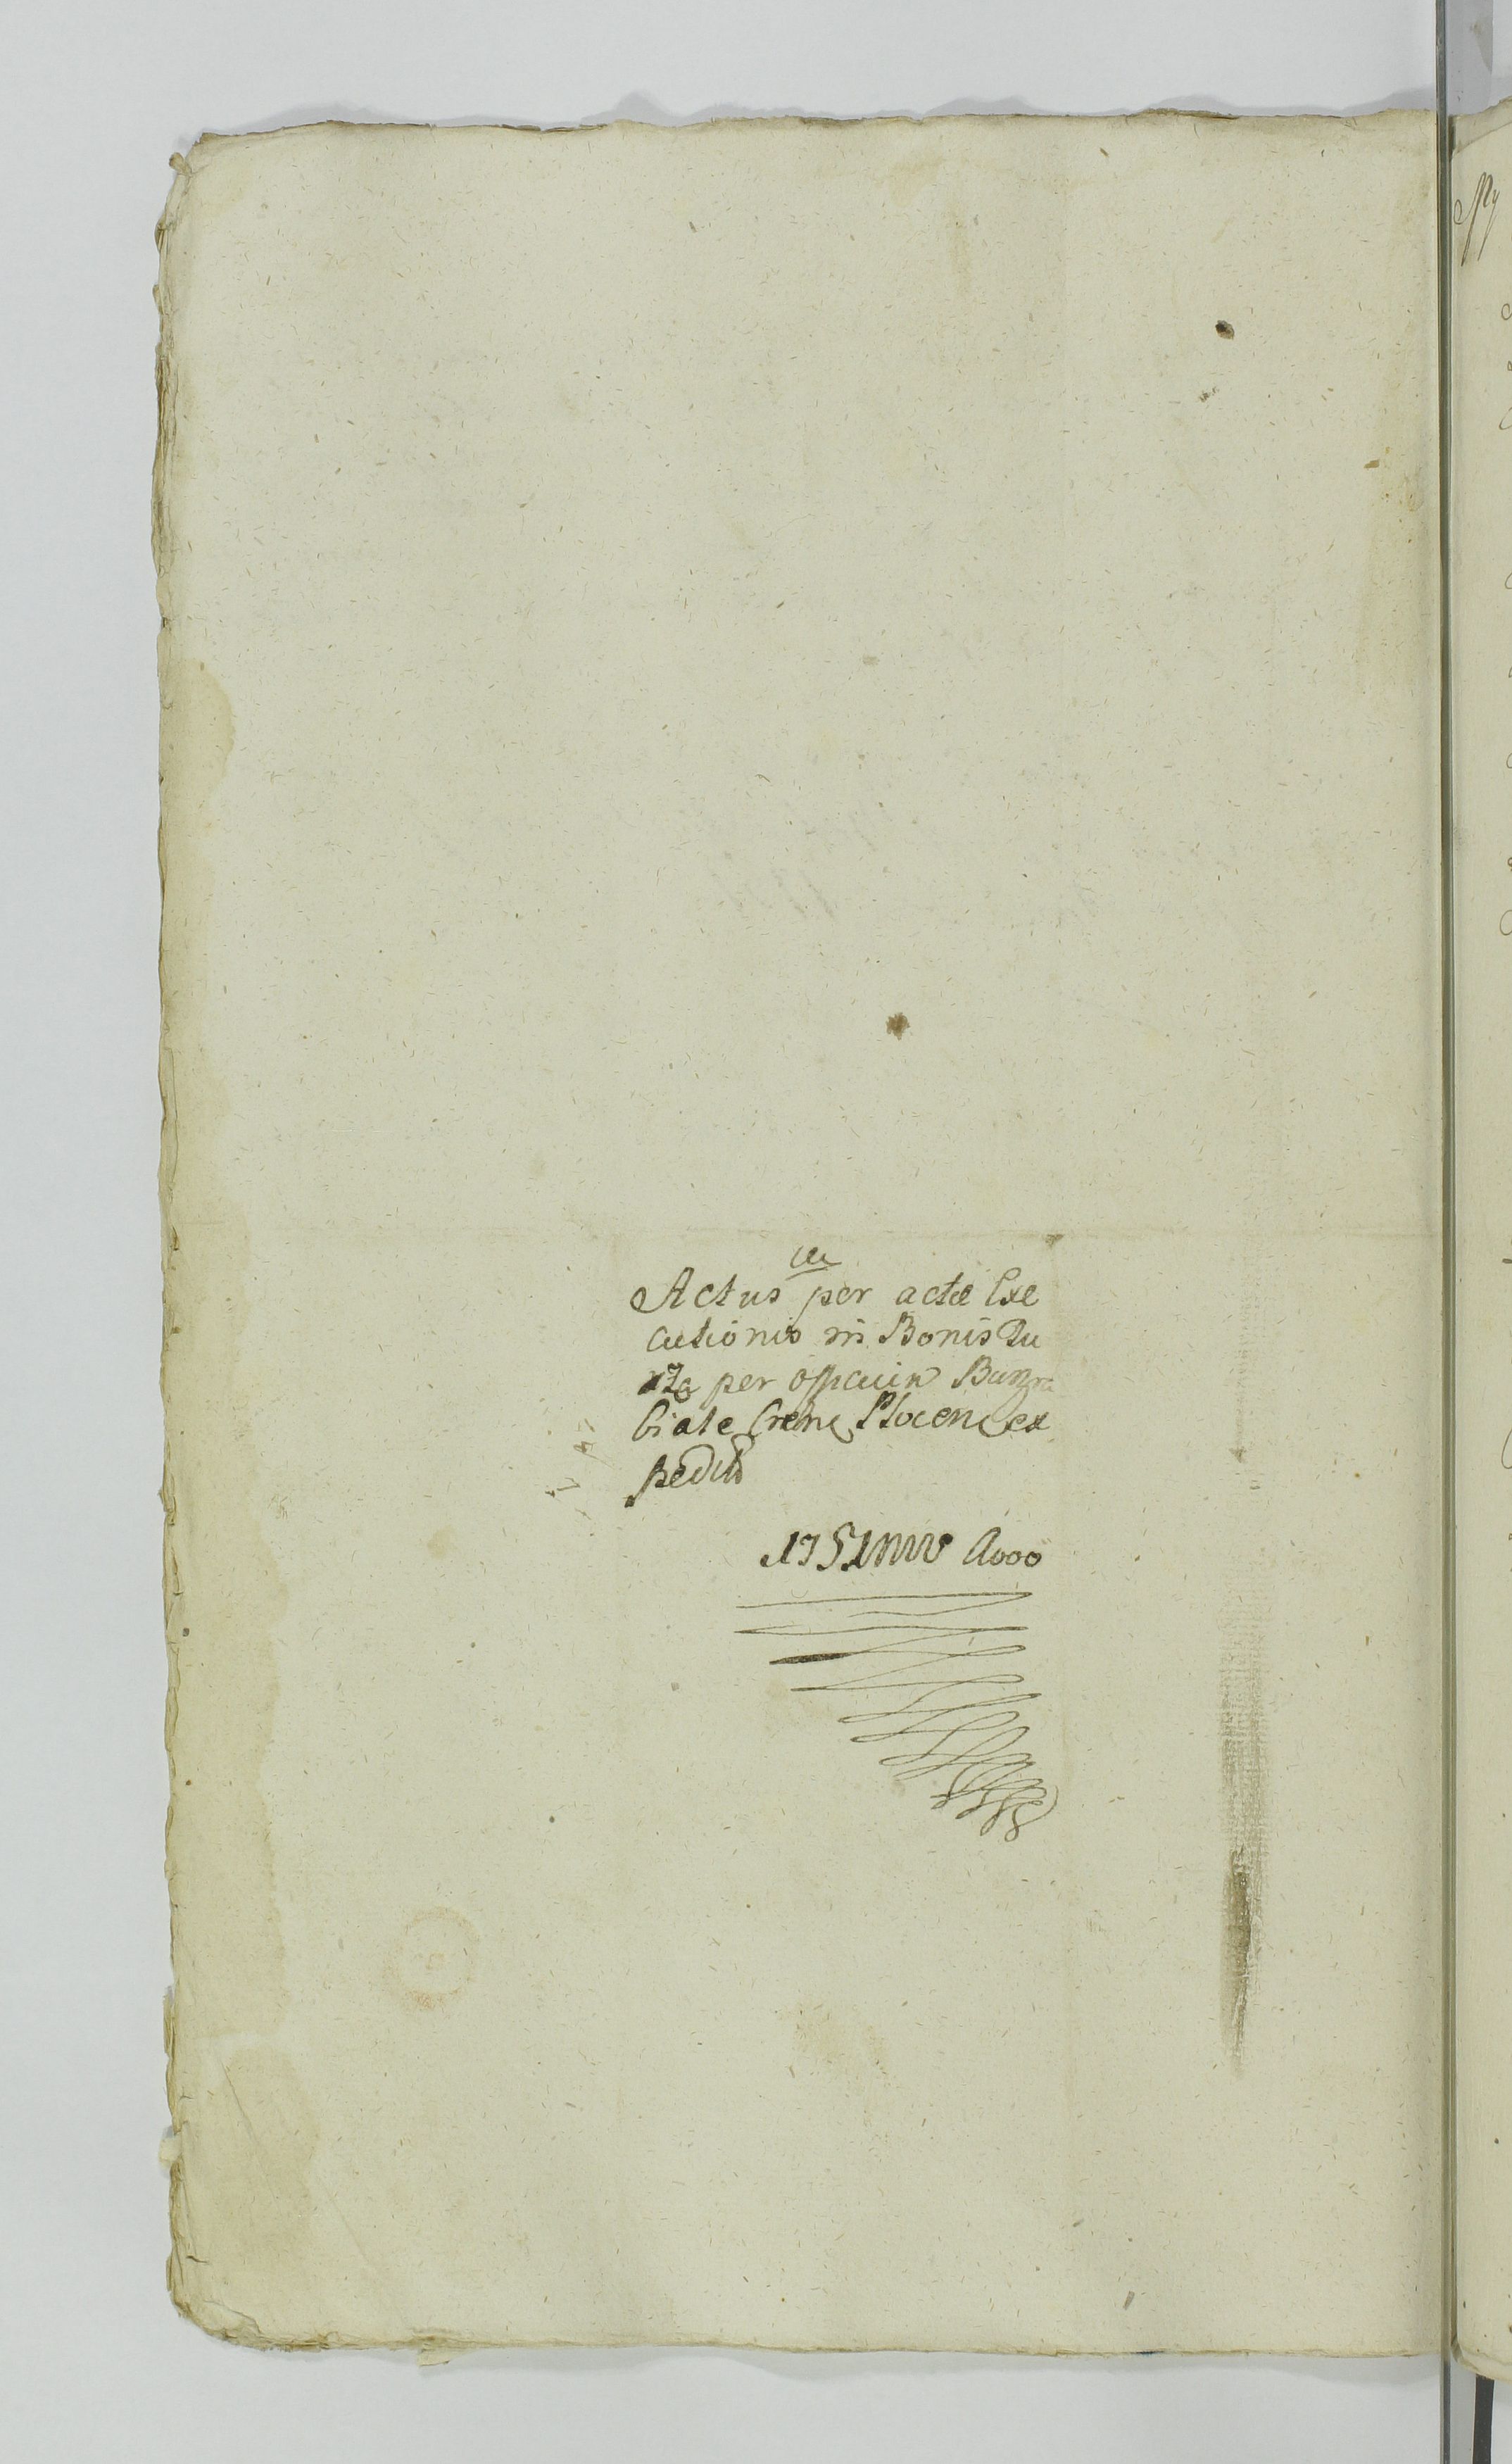 Actus per actæ Exe
cutionis in Bonis Tu
rza per officium Burgra
biale Crene Plocen ex
pedit
1751mo Anno